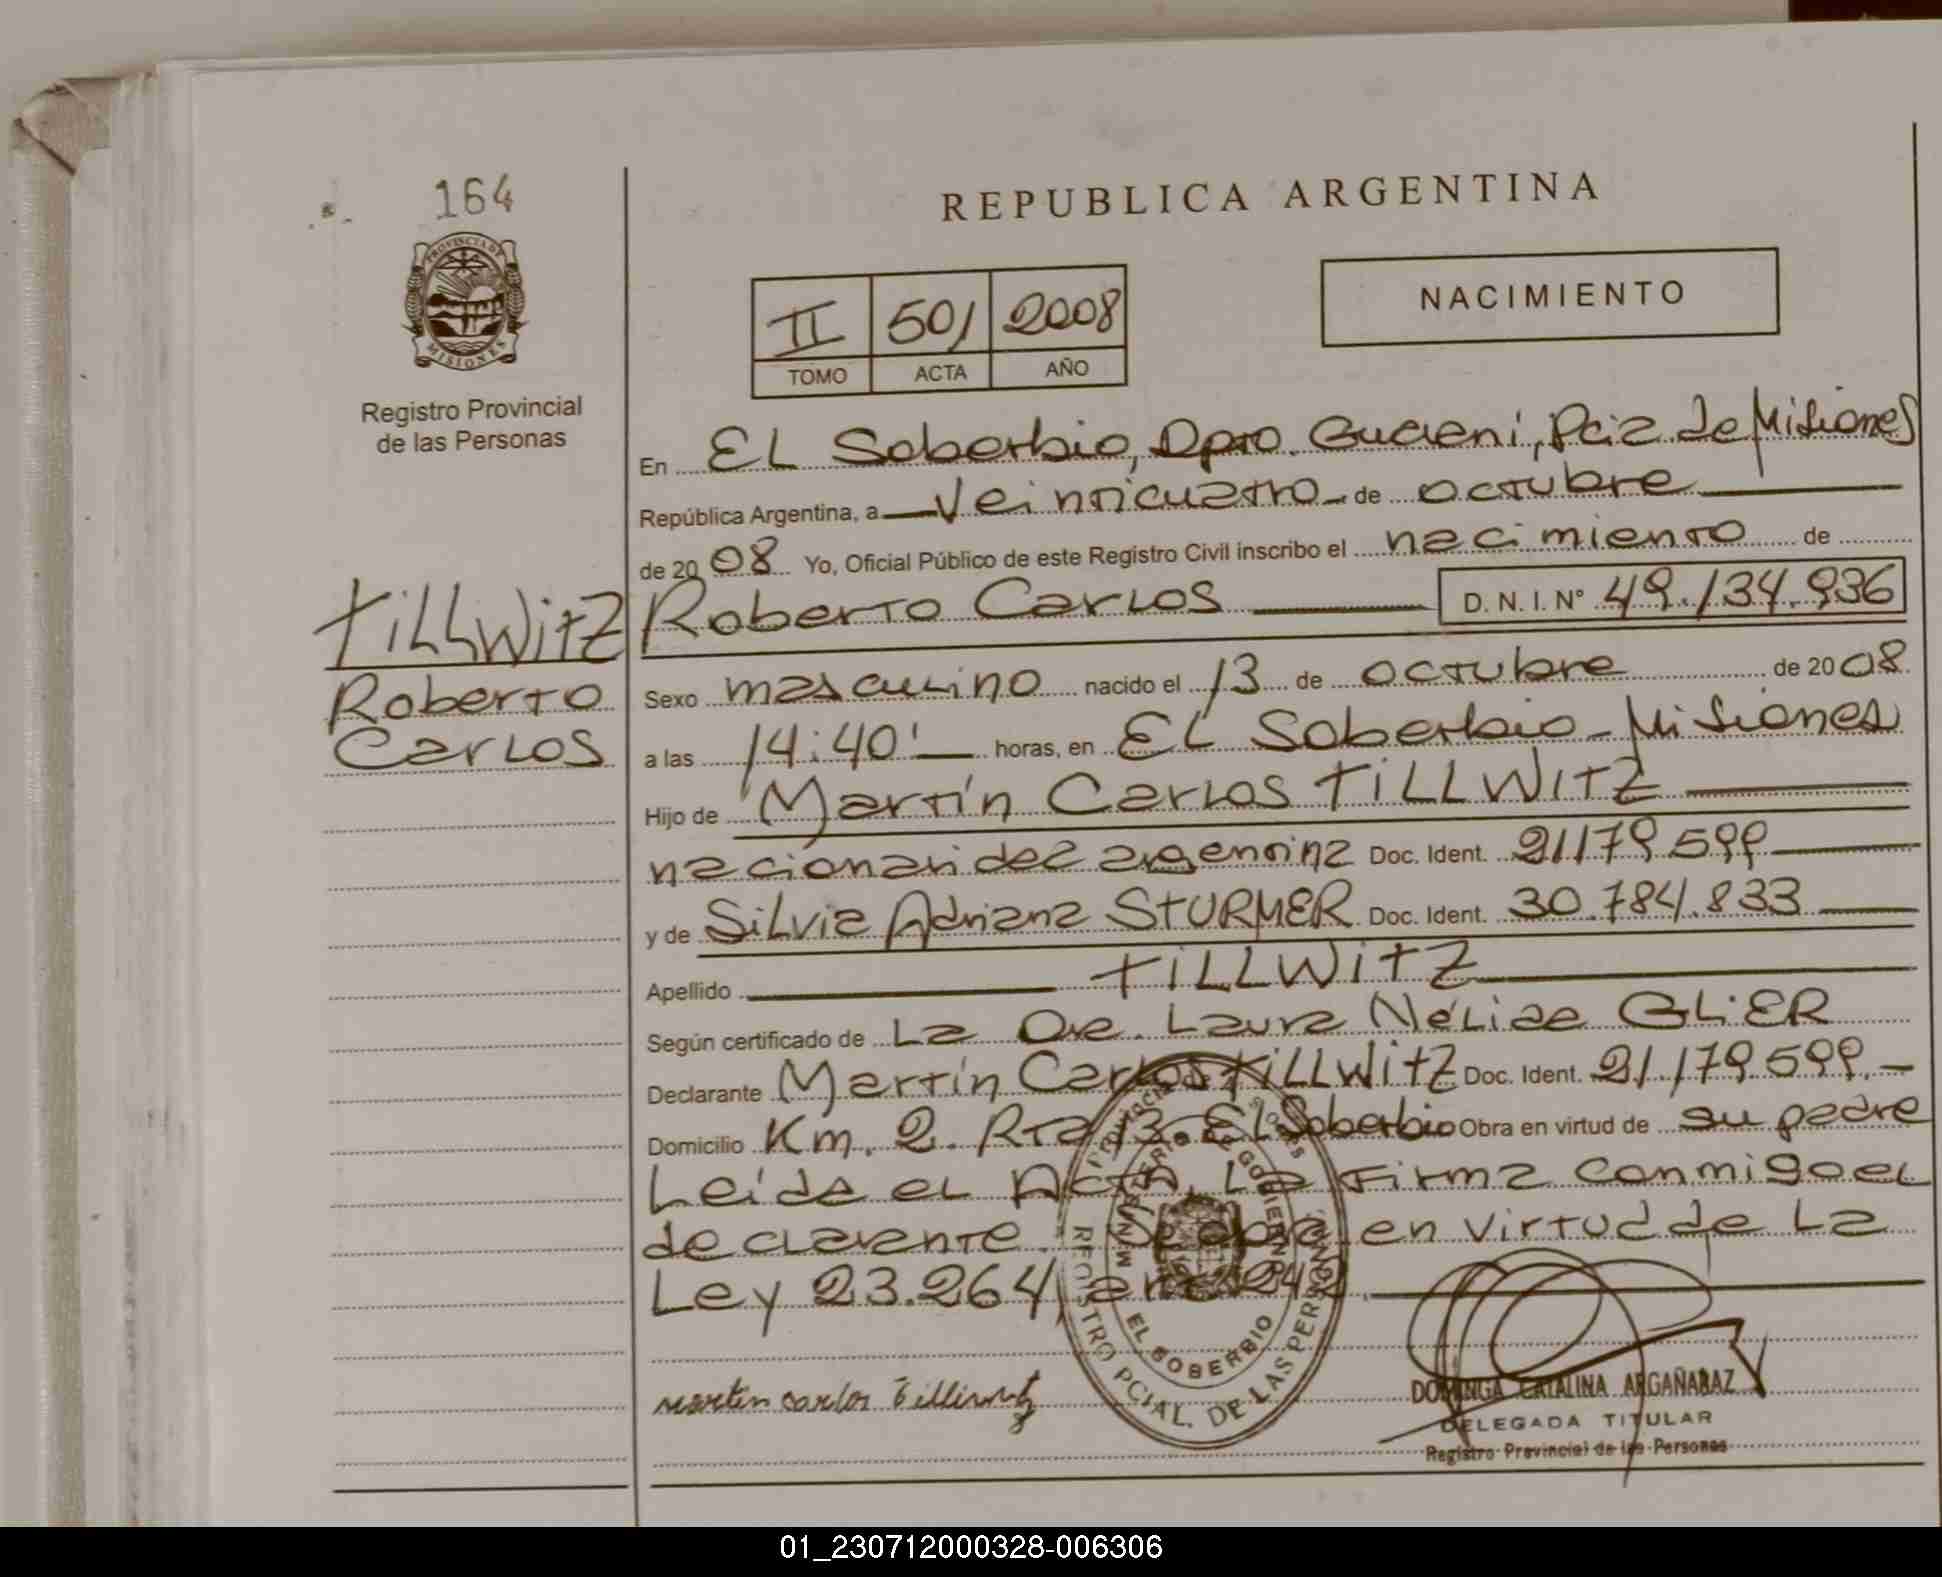 164
PROVINCIA DE
MISIONES
Registro Provincial
de las Personas
TILLWITZ
Roberto
Carlos
REPUBLICA ARGENTINA
II 501 2008
TOMO ACTA AÑO
NACIMIENTO
En El Soberbio, Dpto. Guarani, Pcia de Misiones
República Argentina, a veinticuatro de octubre
de 2008 Yo, Oficial Público de este Registro Civil inscribo el nacimiento de
Roberto Carlos D. N. I. Nº 49.134.936
Sexo masculino nacido el 13 de octubre de 2008
a las 14:40' horas, en El Soberbio - Misiones
Hijo de Martín Carlos TILLWITZ
nacionalidad argentina Doc. Ident. 21179599
y de Silvia Adriana STURMER Doc. Ident. 30.784.833
Apellido TILLWITZ
Según certificado de La Laura GLIER
Declarante Martín Carlos TILLWITZ Doc. Ident. 21.179.599.-
Domicilio Km. 2. Rta 13 - El Soberbio Obra en virtud de su padre
Leída el Acta, La Firma conmigo el
declarante. Se obra en virtud de La
Ley 23.264, art.
martin carlos tillwitz
MINISTERIO DE GOBIERNO
EL SOBERBIO
REGISTRO PCIAL. DE LAS PERSONAS
DOMINGA CATALINA ARGAÑARAZ
DELEGADA TITULAR
Registro Provincial de las Personas
01_230712000328-006306